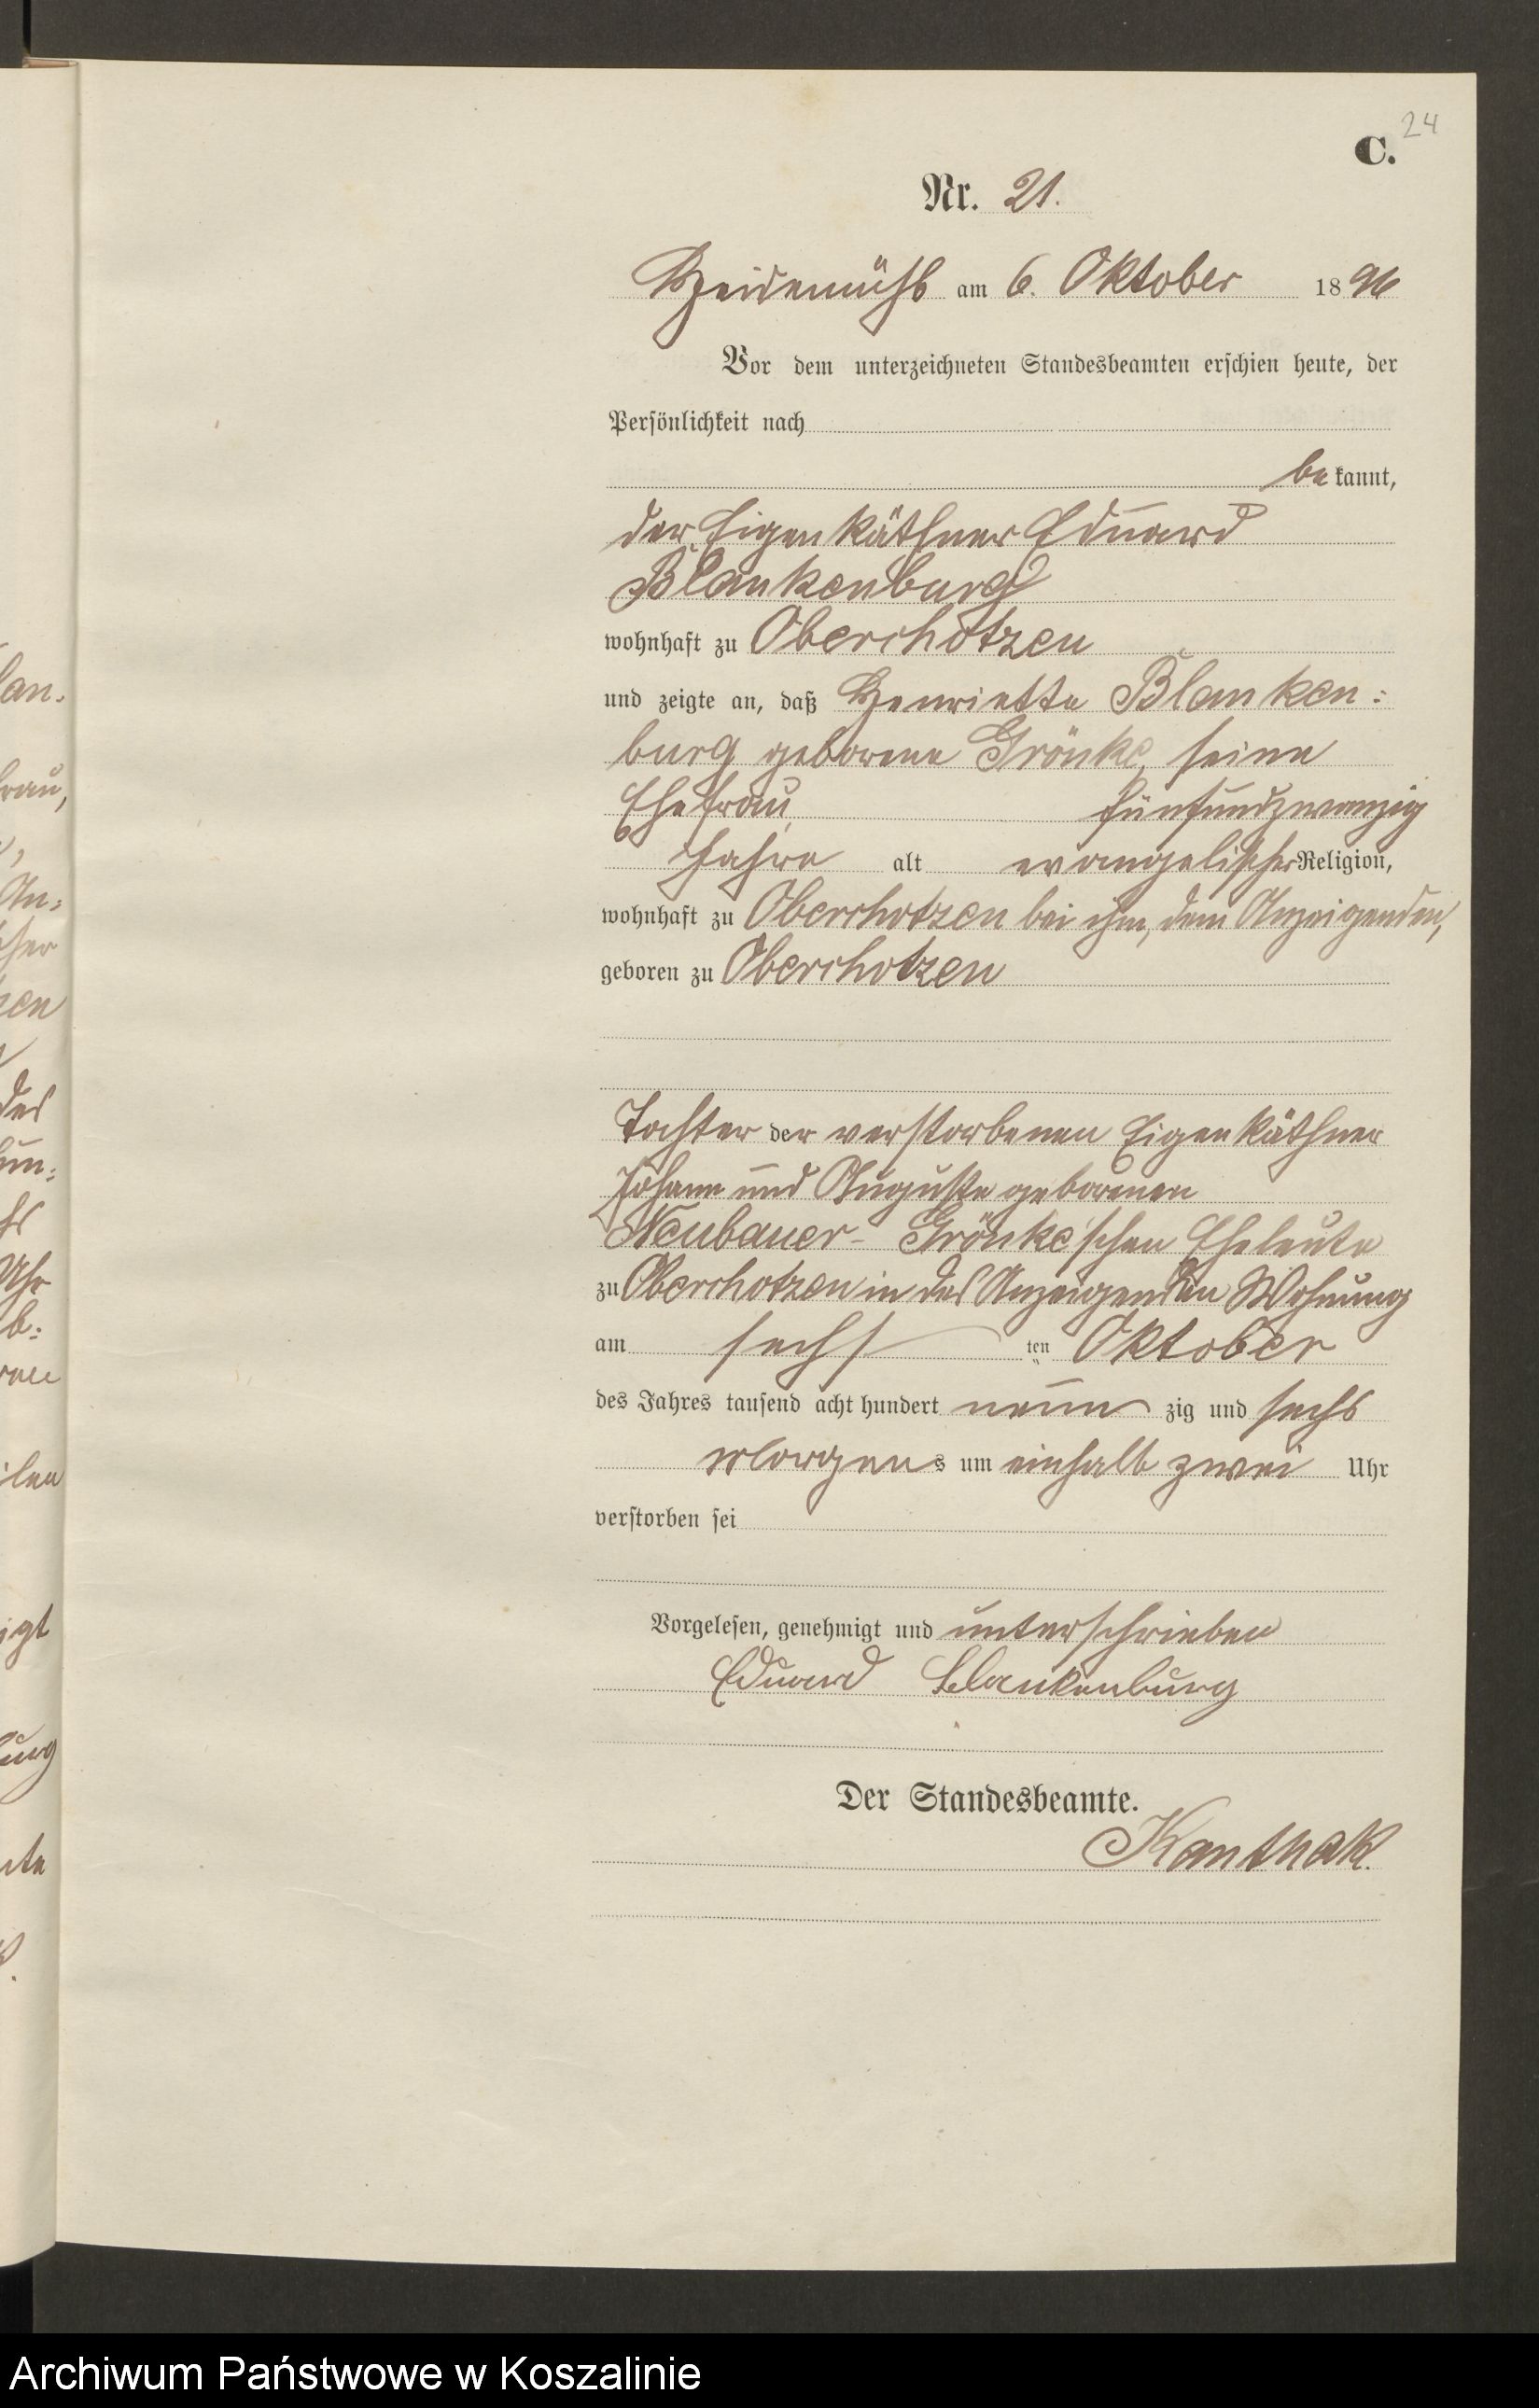 24
C.
Nr. 21.
Heidemühl am 6. Oktober 1896
Vor dem unterzeichneten Standesbeamten erschien heute, der
Persönlichkeit nach
bekannt,
der Eigenkäthner Eduard
Blankenburg
wohnhaft zu Oberchotzen
und zeigte an, daß Henriette Blanken:
burg geborene Grönke, seine
Ehefrau, fünfundzwanzig
Jahre alt evangelischer Religion,
wohnhaft zu Oberchotzen bei ihm, dem Anzeigenden,
geboren zu Oberchotzen
Tochter der verstorbenen Eigenkäthner
Johann und Auguste geborenen
Neubauer- Grönke'schen Eheleute
zu Oberchotzen in des Anzeigenden Wohnung
am sechsten Oktober
des Jahres tausend acht hundert neunzig und sechs
Morgens um einhalb zwei Uhr
verstorben sei
Vorgelesen, genehmigt und unterschrieben
Eduard Blankenburg
Der Standesbeamte.
Kanthak.
Archiwum Państwowe w Koszalinie